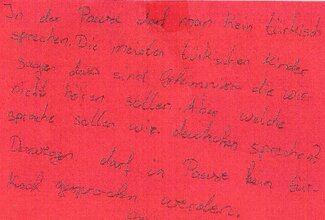 In der Pause darf man kein türkisch
sprechen. Die meisten türkischen Kinder
sagen das sind Geheimnisse die wir
nicht hören sollen. Aber welche
sprache sollen wir deutschen sprechen?
Deswegen darf in Pause kein Tür-
kisch gesprochen werden.